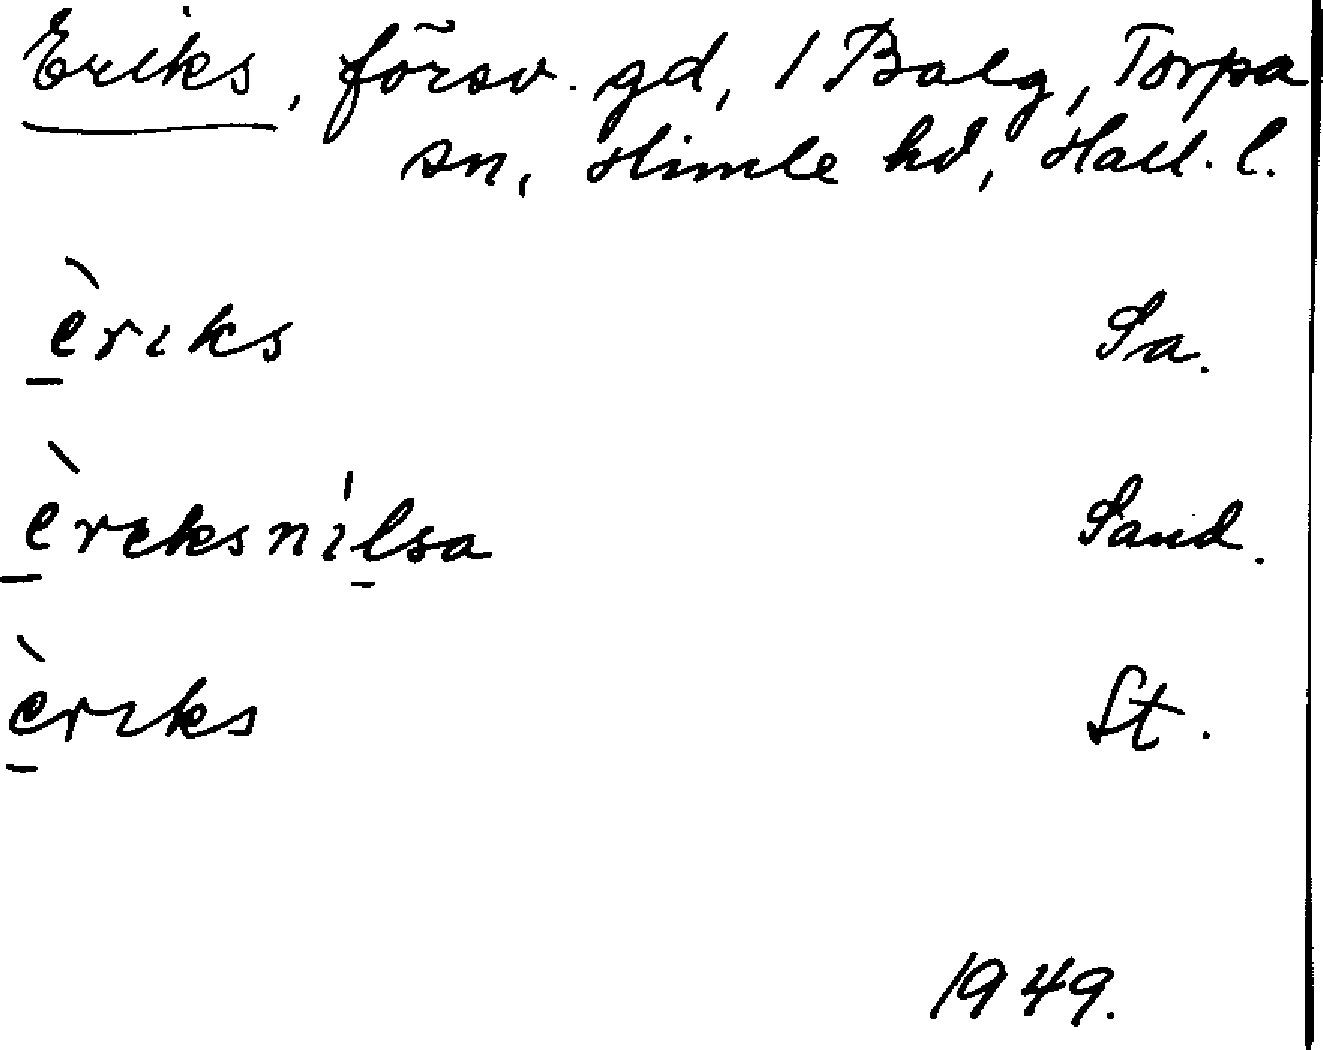 Eriks, försv. gd, 1 Balg, Torpa
sn, Himle hd, Hall. l.
èrıks Sa.
èrıksnılsa Sand.
èrıks St.
1949.